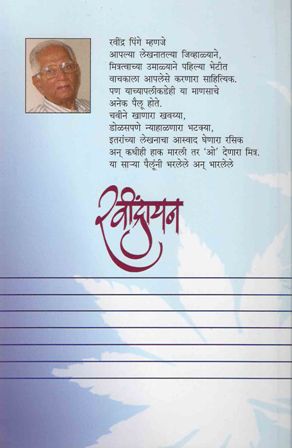 रवींद्र पिंगे म्हणजे
आपल्या लेखनातल्या जिव्हाळ्याने,
मित्रत्वाच्या उमाळ्याने पहिल्या भेटीत
वाचकाला आपलेसे करणारा साहित्यिक.
पण याच्यापलीकडेही या माणसाचे
अनेक पैलू होते.
चवीने खाणारा खवय्या,
डोळसपणे न्याहाळणारा भटक्या,
इतरांच्या लेखनाचा आस्वाद घेणारा रसिक
अन् कधीही हाक मारली तर 'ओ' देणारा मित्र.
या साऱ्या पैलूंनी भरलेले अन् भारलेले
रवींद्रायन